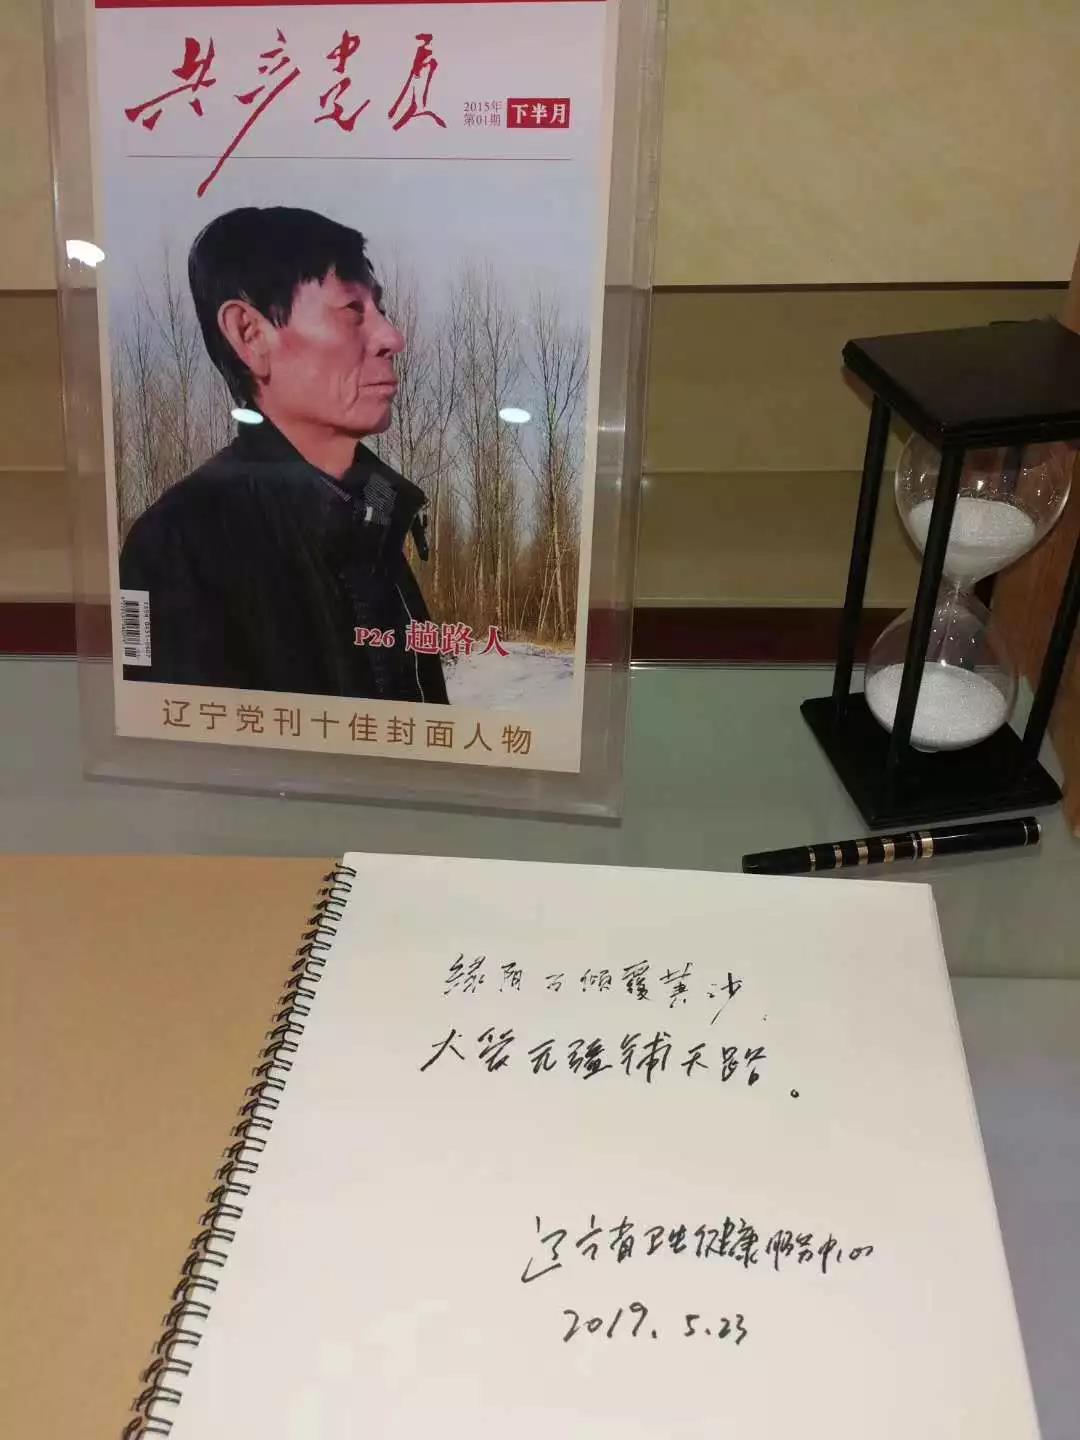 共产党员
2015年
第01期
下半月
P26 趟路人
辽宁党刊十佳封面人物
绿阴万倾覆黄沙
大爱无疆铺天路。
辽宁省卫生健康服务中心
2019.5.23